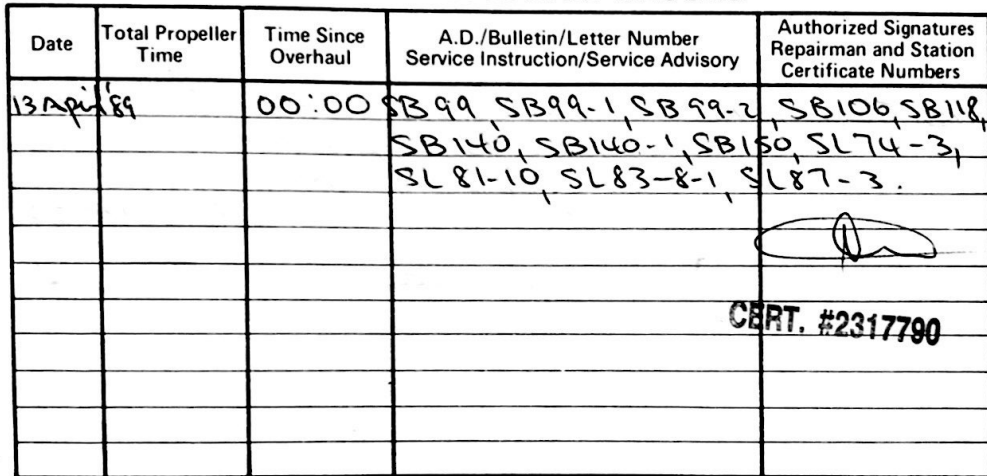 Date
Total Propeller
Time
Time Since
Overhaul
A.D./Bulletin/Letter Number
Service Instruction/Service Advisory
Authorized Signatures
Repairman and Station
Certificate Numbers
13 April '89 00:00 SB99, SB99-1, SB99-2, SB106, SB118,
SB140, SB140-1, SB150, SL74-3,
SL81-10, SL83-8-1, SL87-3.
CERT. #2317790